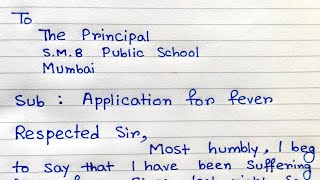 To
The Principal
S.M.B Public School
Mumbai
Sub : Application for fever
Respected Sir,
Most humbly, I beg
to say that I have been suffering